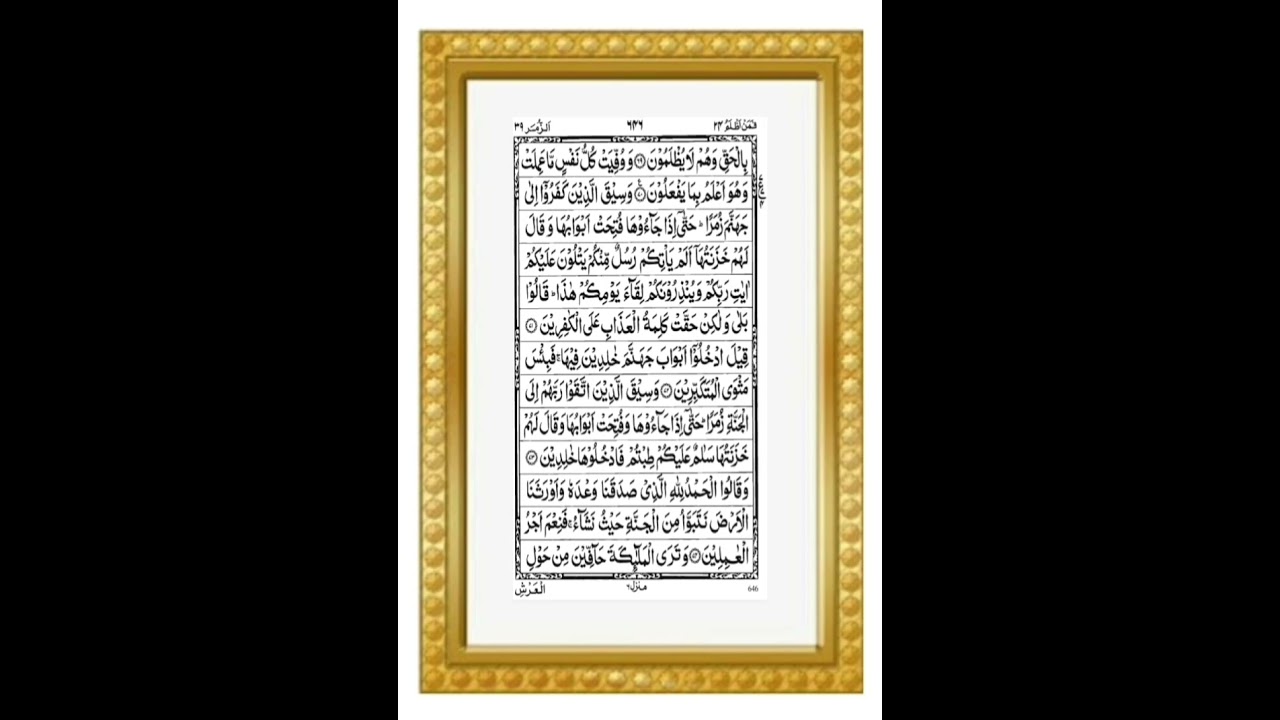 فَمَنْ اَظْلَمُ ٢٤ ٦٤٦ اَلزُّمَر ٣٩
بِالْحَقِّ وَهُمْ لَا يُظْلَمُوْنَ ۝٦٩ وَوُفِّيَتْ كُلُّ نَفْسٍ مَّا عَمِلَتْ
وَهُوَ اَعْلَمُ بِمَا يَفْعَلُوْنَ ۝٧٠ وَسِيْقَ الَّذِيْنَ كَفَرُوْۤا اِلٰى
جَهَنَّمَ زُمَرًا ؕ حَتّٰۤى اِذَا جَآءُوْهَا فُتِحَتْ اَبْوَابُهَا وَقَالَ
لَهُمْ خَزَنَتُهَاۤ اَلَمْ يَاْتِكُمْ رُسُلٌ مِّنْكُمْ يَتْلُوْنَ عَلَيْكُمْ
اٰيٰتِ رَبِّكُمْ وَيُنْذِرُوْنَكُمْ لِقَآءَ يَوْمِكُمْ هٰذَا ؕ قَالُوْا
بَلٰى وَلٰكِنْ حَقَّتْ كَلِمَةُ الْعَذَابِ عَلَى الْكٰفِرِيْنَ ۝٧١
قِيْلَ ادْخُلُوْۤا اَبْوَابَ جَهَنَّمَ خٰلِدِيْنَ فِيْهَا ۚ فَبِئْسَ
مَثْوَى الْمُتَكَبِّرِيْنَ ۝٧٢ وَسِيْقَ الَّذِيْنَ اتَّقَوْا رَبَّهُمْ اِلَى
الْجَنَّةِ زُمَرًا ؕ حَتّٰۤى اِذَا جَآءُوْهَا وَفُتِحَتْ اَبْوَابُهَا وَقَالَ لَهُمْ
خَزَنَتُهَا سَلٰمٌ عَلَيْكُمْ طِبْتُمْ فَادْخُلُوْهَا خٰلِدِيْنَ ۝٧٣
وَقَالُوا الْحَمْدُ لِلّٰهِ الَّذِيْ صَدَقَنَا وَعْدَهٗ وَاَوْرَثَنَا
الْاَرْضَ نَتَبَوَّاُ مِنَ الْجَنَّةِ حَيْثُ نَشَآءُ ۚ فَنِعْمَ اَجْرُ
الْعٰمِلِيْنَ ۝٧٤ وَتَرَى الْمَلٰٓئِكَةَ حَآفِّيْنَ مِنْ حَوْلِ
646 منزل ٦ الْعَرْشِ